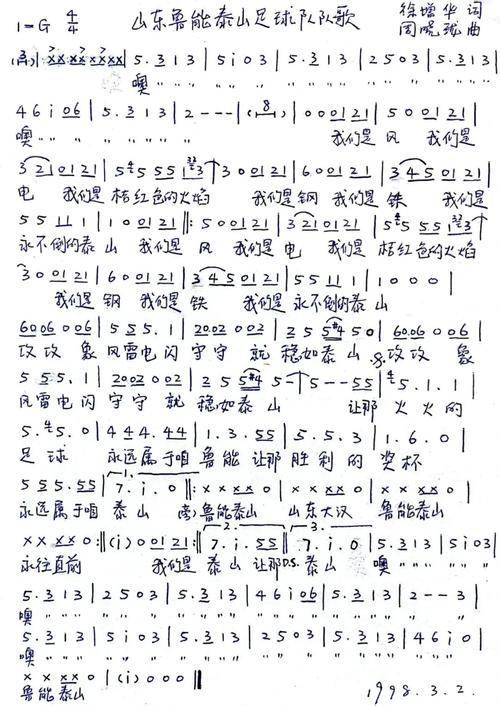 山东鲁能泰山足球队队歌
1=G 4/4
徐增华 词
周晓珑 曲
5. 3 1 3 | 5 i 0 3 | 5. 3 1 3 | 2 5 0 3 | 5. 3 1 3 |
噢 " " "
4 6 i 0 6 | 5. 3 1 3 | 2 - - - | (8) | 0 0 0 1 2 1 | 5 0 0 1 2 1 |
噢 " " " 我们是 风 我们是
3 2 1 0 1 2 1 | 3 0 0 1 2 1 | 6 0 0 1 2 1 | 3 4 5 0 1 2 1 |
电 我们是 桔红色的火焰 我们是 钢 我们是 铁 我们是
5 5 1 1 | 1 0 0 1 2 1 ‖: 5 0 0 1 2 1 | 3 2 1 0 1 2 1 |
永不倒的泰山 我们是 风 我们是 电 我们是 桔红色的火焰
3 0 0 1 2 1 | 6 0 0 1 2 1 | 3 4 5 0 1 2 1 | 5 5 1 1 | 1 0 0 0 |
我们是 钢 我们是 铁 我们是 永不倒的泰山
6006 006 | 5 5 5. 1 | 2002 002 | 2 5 5#4 5 0 | 6006 006 |
攻攻 象风雷电闪 守守 就 稳如泰山 攻攻 象
5 5 5. 1 | 2002 002 | 2 5 5#4 5 - | 5 - - 5 5 | 5. 1. 1 |
风雷电闪 守守 就 稳如泰山 让那 火火的
5. 5. 0 | 4 4 4. 4 4 | 1. 3. 5 5 | 5. 5. 3 | 1. 6. 0 |
足球 永远属于咱 鲁能 让那 胜利的 奖杯
5 5 5. 5 5 | 7. i. 0 ‖: x x x x 0 | x x x x 0 | x x x x 0 |
永远属于咱 泰山 鲁能泰山 山东大汉 鲁能泰山
x x x x 0 :‖ (i) 0 0 1 2 1 :‖ 7. i. 5 5 ‖ 7. i. 0 | 5. 3 1 3 | 5 i 0 3 |
永往直前 我们是 泰山 让那 D.S. 泰山 噢 " " "
5. 3 1 3 | 2 5 0 3 | 5. 3 1 3 | 4 6 i 0 6 | 5. 3 1 3 | 2 - - 3 |
噢 " " "
5. 3 1 3 | 5 i 0 3 | 5. 3 1 3 | 2 5 0 3 | 5. 3 1 3 | 4 6 i 0 |
噢 " " "
x x x x 0 | (i) 0 0 0 ‖
鲁能泰山
1998.3.2.